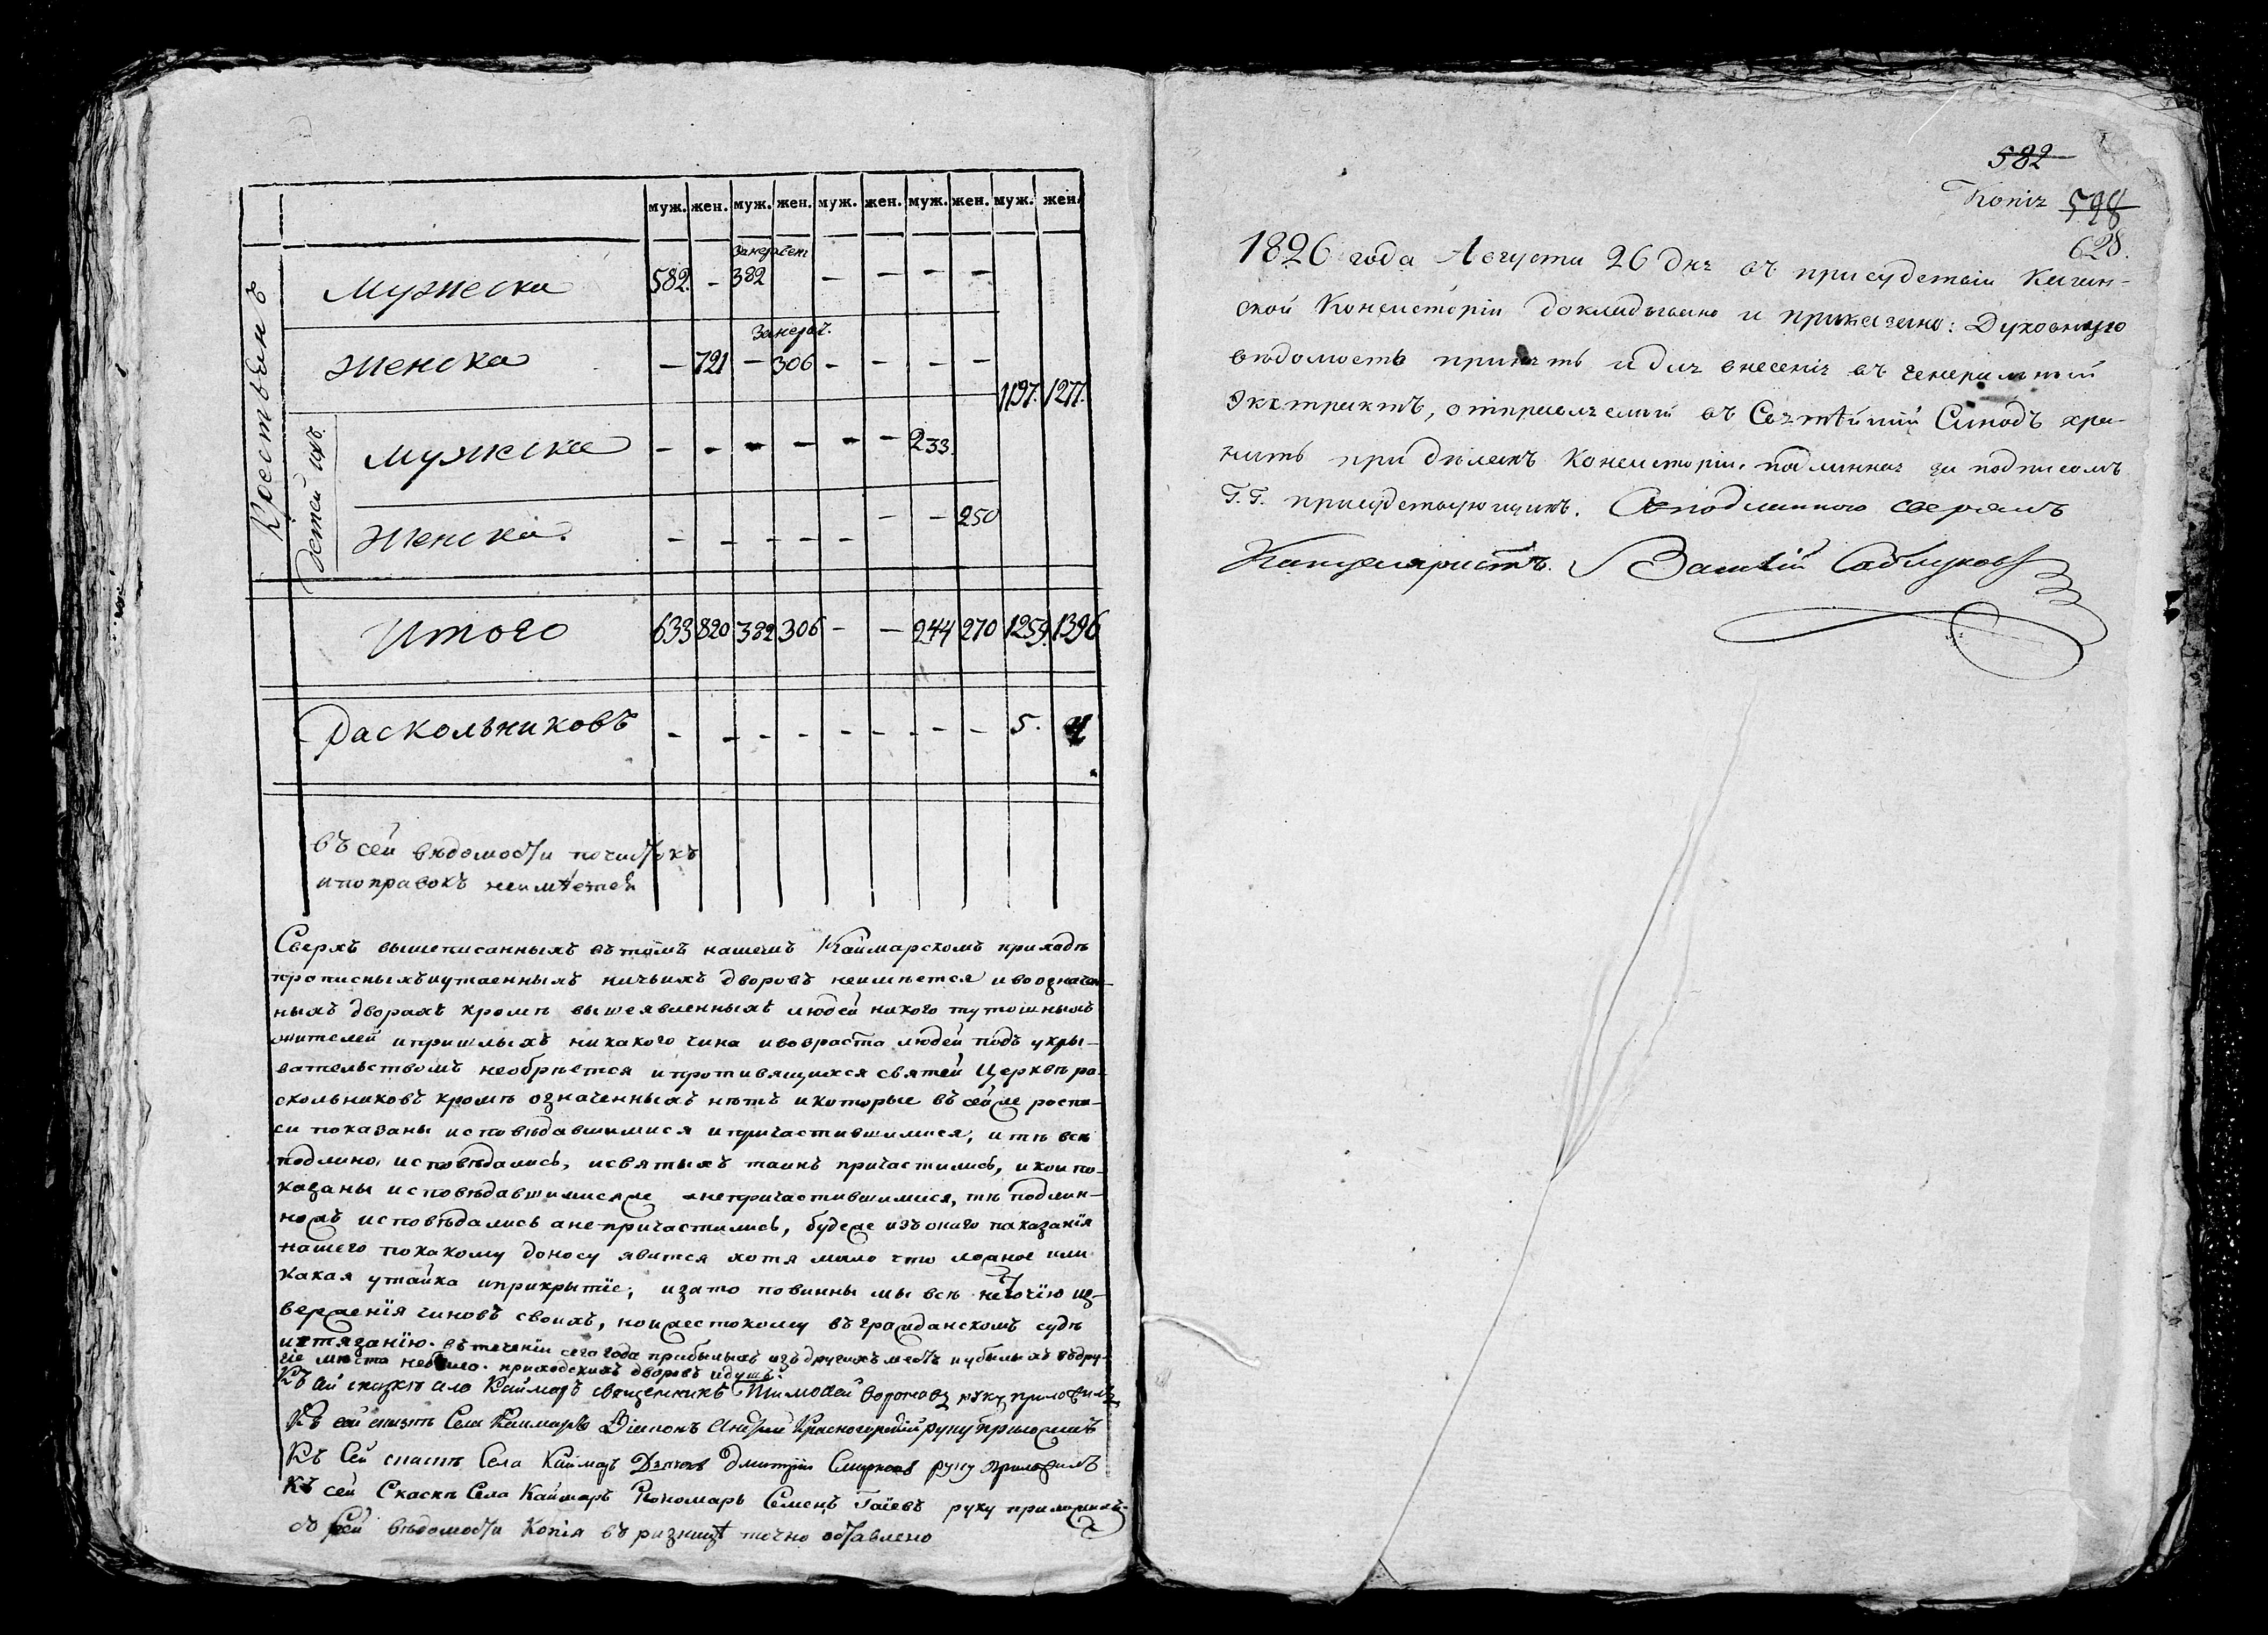 муж. жен. муж. жен. муж. жен. муж. жен. муж. жен.
Крестьянъ
Мужеска 582. - 382 - - - -
Женска - 721 - 306 - - - - 1197. 1277.
детей ихъ.
мужеска - - - - - - 233.
Женска. - - - - - - - 250
Итого 633 820 382 306 - - 244 270 1259. 1396
Раскольниковъ - - - - - - - - 5.
въ сей вѣдомости почистокъ
и поправокъ неимѣется
Сверхъ вышеписанныхъ въ томъ нашемъ Каймарскомъ приходѣ
прописныхъ иутаенныхъ ничьихъ дворовъ неимѣется ивоозначен-
ныхъ дворахъ кромѣ вышеявленныхъ людей никого тутошныхъ
жителей ипришлыхъ никакого чина ивозраста людей подъ укры-
вательствомъ необрѣтется ипротивящихся святей Церквѣ ра-
скольниковъ кромѣ означенныхъ нѣтъ икоторые въ сейже роспи-
си показаны исповѣдавшимися ипричастившимися, итѣ всѣ
подлино исповѣдались, исвятыхъ таинъ причастились, икои по-
казаны исповѣдавшимисяже анепричастившимися, тѣ подлин-
ножъ исповѣдались анепричастились, будеже изъ онаго показанія
нашего покакому доносу явится хотя мало что ложное или
какая утайка иприкрытіе; изато повинны мы всѣ неточію из-
верженія чиновъ своихъ, ноижестокому въ гражданскомъ судѣ
истязанію. въ теченіи сего года прибылыхъ изъ другихъ местъ иубылыхъ въдру-
гіе мѣста небыло. приходскихъ дворовъ идушъ.
Къ сей сказкѣ села Каймаръ священникъ Тимофей Вороновъ руку приложилъ
Къ сей сказкѣ Села Каймаръ Діаконъ Андрей Красногорскій руку приложилъ
Къ Сей скаскѣ Села Каймаръ Дьячокъ Дмитрій Смирновъ руку приложилъ
Къ сей Скаскѣ Села Каймаръ Пономарь Семенъ Гаіевъ руку приложилъ
съ Сей вѣдомости Копія въ ризницѣ точно оставлено
582
Копія 598
628.
1826 года Августа 26 дня въ присудствіи Казан-
ской Консисторіи докладывано и приказано: Духовную
вѣдомость принять и для внесенія въ генеральный
Экстрактъ, отправляемый въ Святѣйшій Синодъ хра-
нить при дѣлахъ Консисторіи. подлинная за подписомъ
Г. Г. присудствующихъ. Съ подлиннымъ сверялъ
Канцеляристъ. Василій Саблуковъ